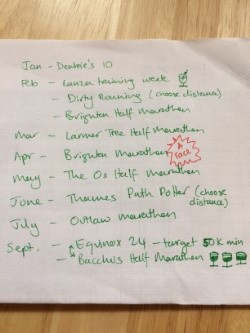 Jan - Deatrie's 10
Feb - Lanza training week
- Dirty Running (choose distance)
- Brighton Half Marathon
Mar - Larmer Tree Half Marathon
Apr - Brighton Marathon
A race
May - The Ox Half Marathon
June - Thames Path Potter (choose
distance)
July - Outlaw marathon
Sept. - Equinox 24 - target 50K min
- Bacchus Half Marathon